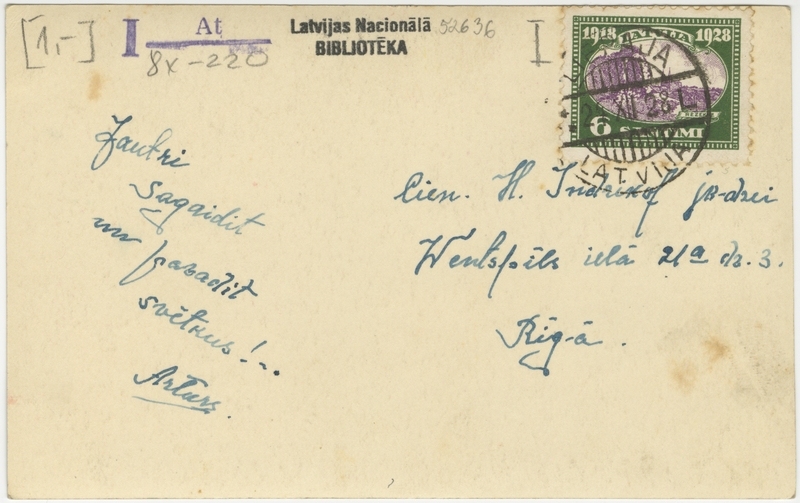 [1,-]
I
At
8x-220
Latvijas Nacionālā
BIBLIOTĒKA
52636
I
1918 LATVIJA 1928
6 SANTIMI
LATVIJA
XII 28 L
Jautri
sagaidit
un pavadit
svētkus!..
Arturs.
Cien. H. jk-dzei
Wentspils ielā 21a dz. 3.
Rīgā.